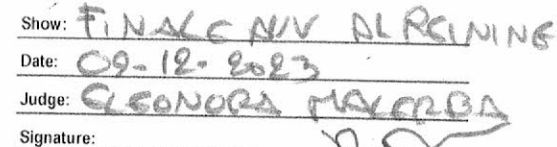 Show: FINALE NIV AL REINING
Date: 09-12-2023
Judge: ELEONORA MALERBA
Signature: